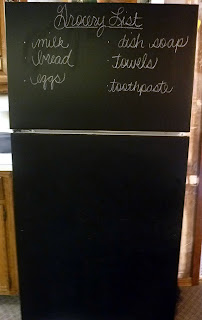 Grocery List
· milk
· bread
· eggs
· dish soap
· Towels
· toothpaste